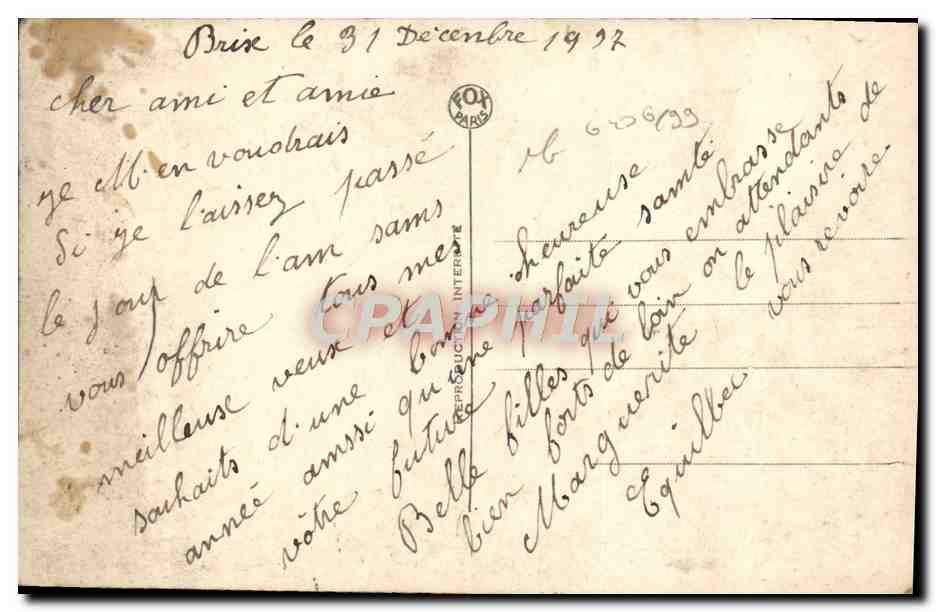 Brix le 31 Décenbre 1937
cher ami et amie
je M'en voudrais
Si je l'aissez passé
le jour de l'am sams
vous offrire tous mes
meilleuse veux et
souhaits d'une bonne heureuse
anneé amssi qu'une parfaite samté
vôtre future
Belle filles qui vous embrasse
bien forts de loin on attendants
Marguerite le plaisire de
Equilbec vous revoire.
FOX
PARIS
REPRODUCTION INTERDITE
CPAPHIL